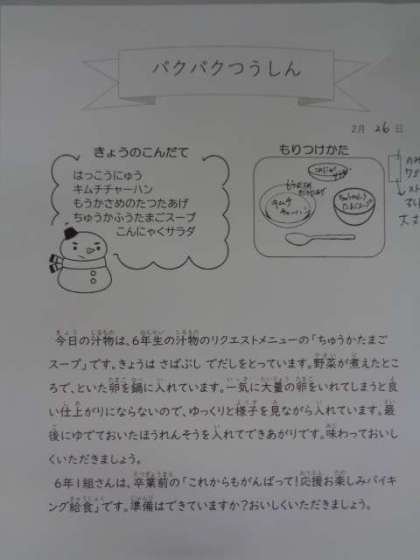 パクパクつうしん
2月 26 日
きょうのこんだて
はっこうにゅう
キムチチャーハン
もうかさめのたつたあげ
ちゅうかふうたまごスープ
こんにゃくサラダ
もりつけかた
キムチ
チャーハン
今日の汁物は、6年生の汁物のリクエストメニューの「ちゅうかたまご
スープ」です。きょうは さばぶし でだしをとっています。野菜が煮えたとこ
ろで、といた卵を鍋に入れています。一気に大量の卵をいれてしまうと良
い仕上がりにならないので、ゆっくりと様子を見ながら入れています。最
後にゆでておいたほうれんそうを入れてできあがりです。味わっておいし
くいただきましょう。
6年1組さんは、卒業前の「これからもがんばって!応援お楽しみバイキ
ング給食」です。準備はできていますか?おいしくいただきましょう。